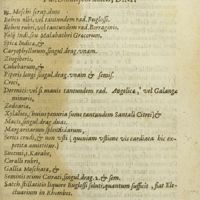 ℞. Moschi scrup. duos
Behen albi, vel tantundem rad. Buglossi.
Behen rubri, vel tantundem rad. Borraginis.
Folij Indi, seu Malabathri Græcorum,
Spicæ Indicæ, &
Caryophyllorum singul. drag. vnam.
Zingiberis,
Cubebarum, &
Piperis longi singul. drag. vnam & semis.
Croci,
Doronici: vel si mauis tantundem rad. Angelicæ, vel Galangæ
minoris,
Zedoariæ,
Xylaloes, huius penuria sume tantundem Santali Citrei) &
Macis, singul. drag. duas,
Margaritarum splendidarum,
erudi, & non vsti; quoniam vstione vis cardiaca hic ex-
petita amittitur.
Succini, Karabe,
Coralli rubri,
Galliæ Moschatæ, &
Seminis ocimi Citrati, singul. drag. 2. & sem.
Satch: stillatitio liquore Buglossi soluti, quantum sufficit, fiat Ele-
ctuarium in Rhombis.